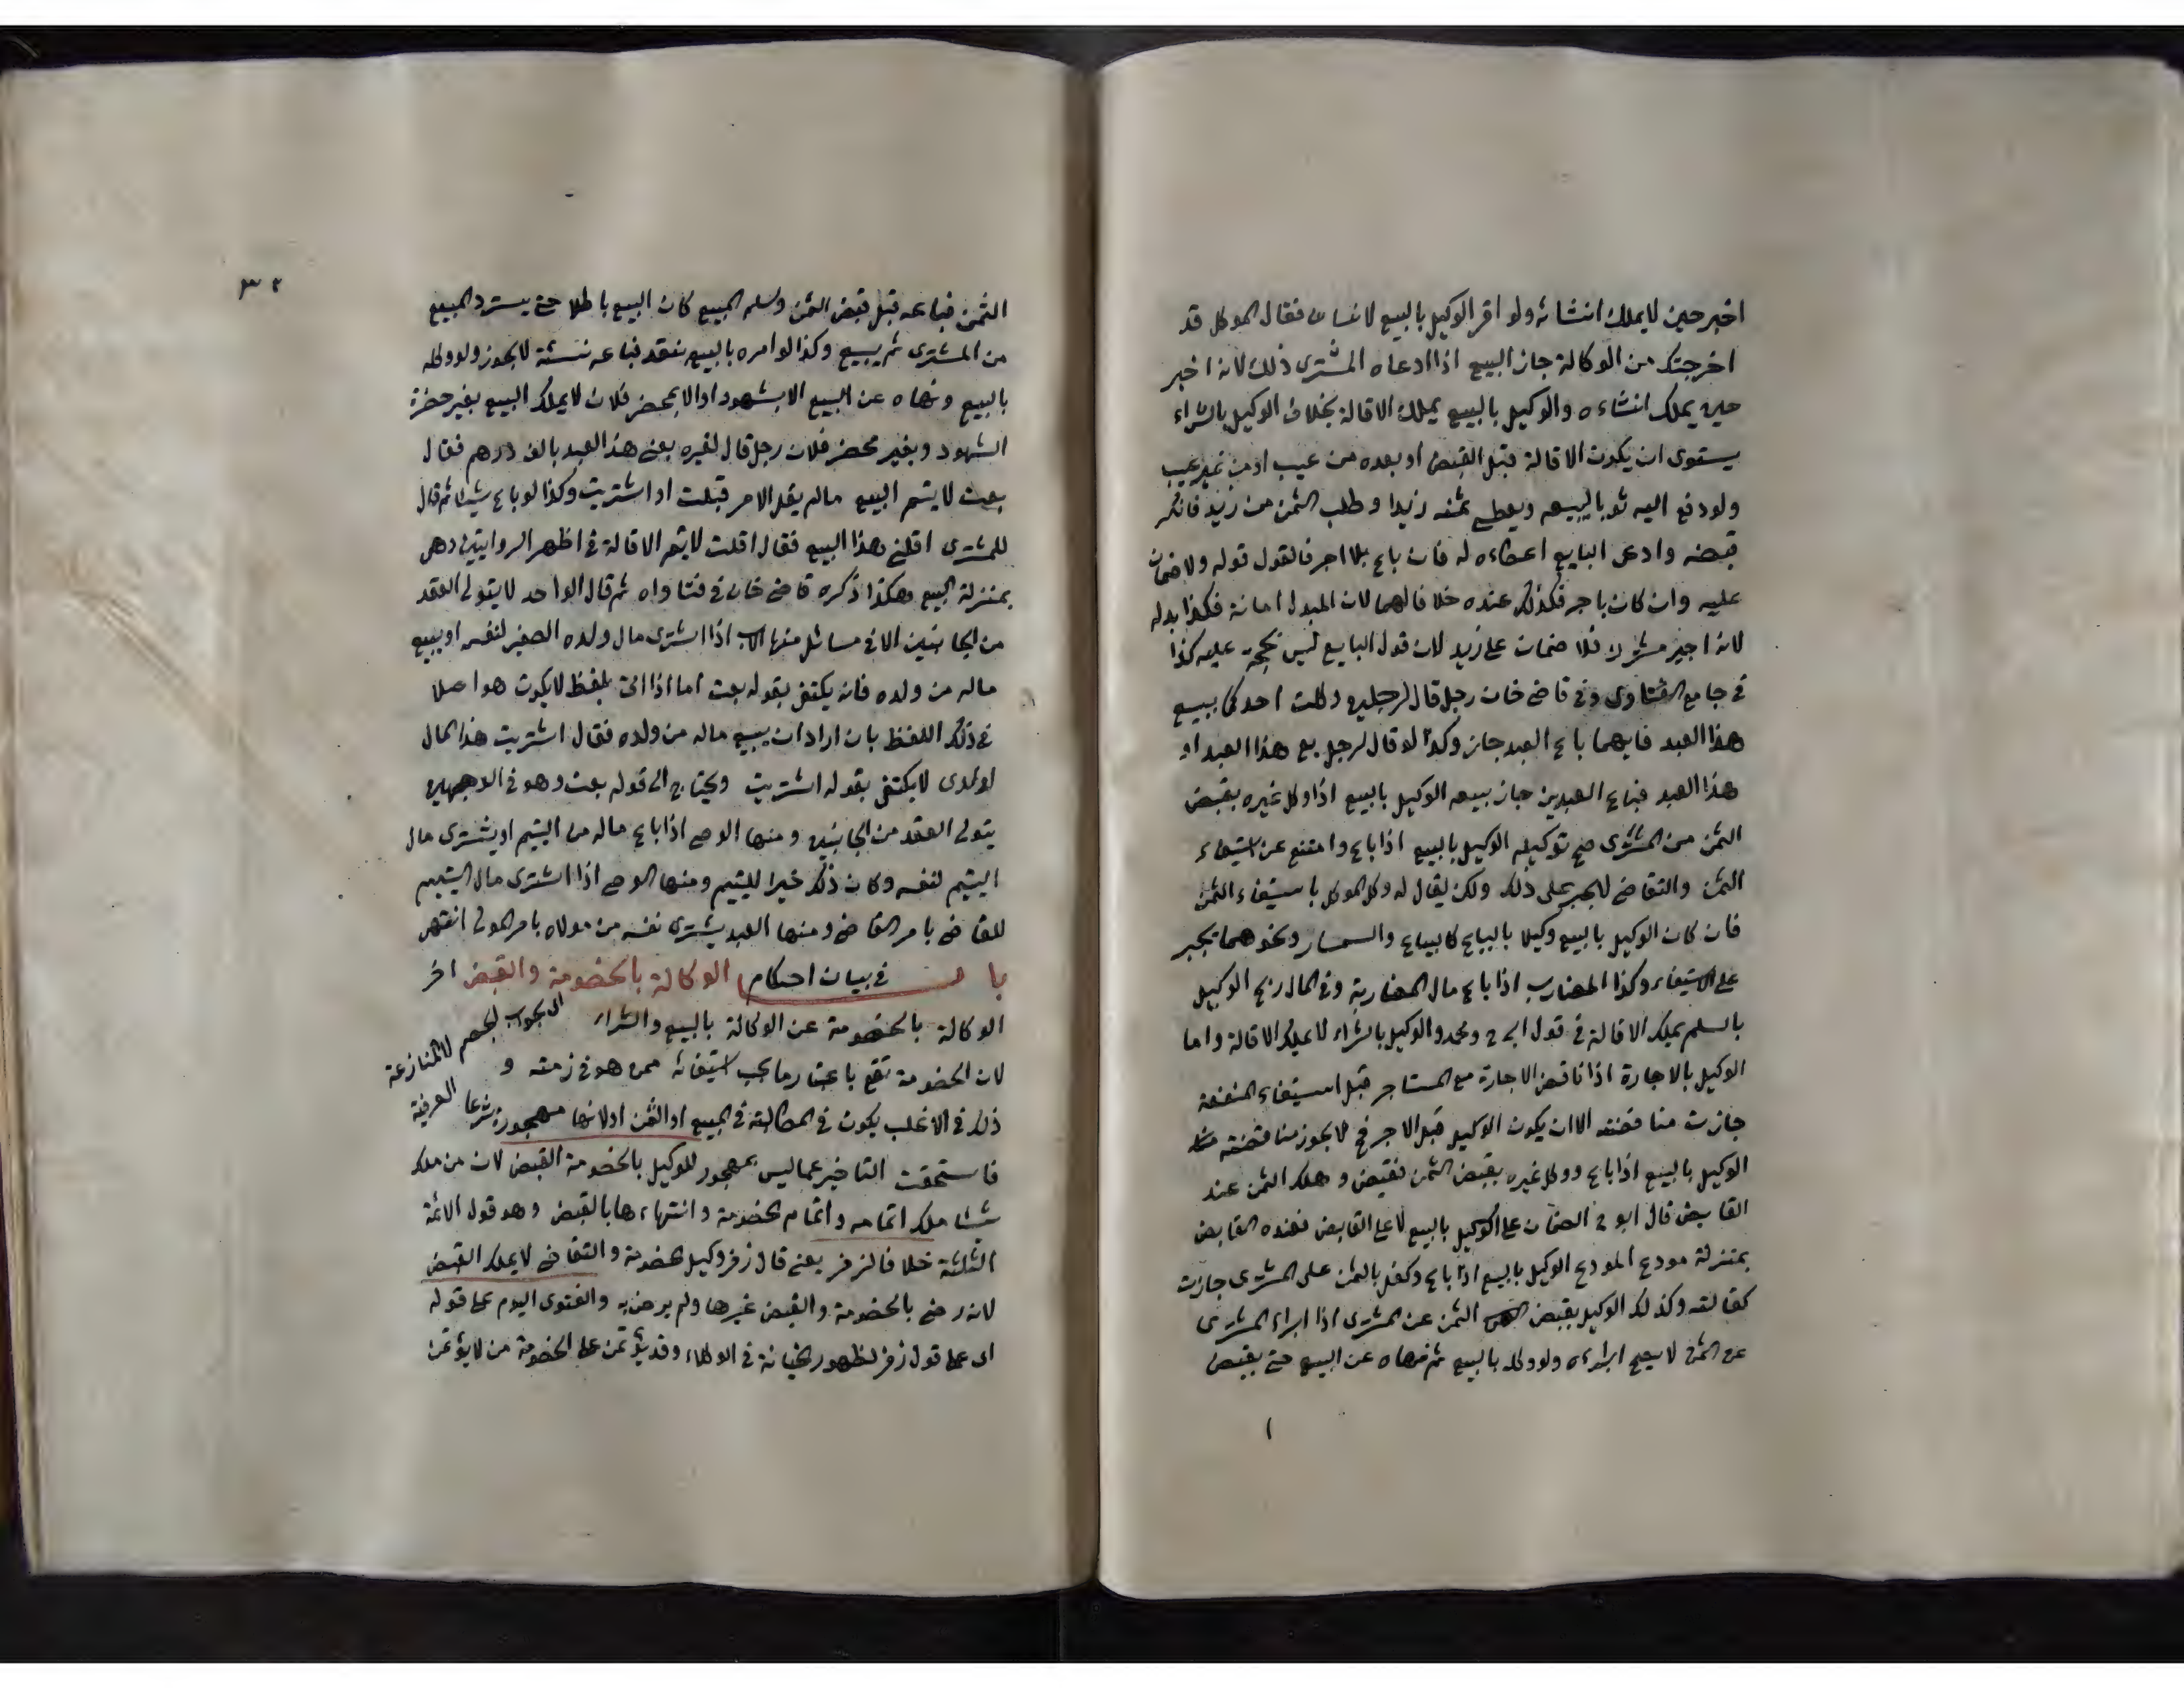 اخبر حين لا يملك انشائه ولو اقر الوكيل بالبيع لانسان فقال الموكل قد
اخرجتك من الوكالة جاز البيع اذا ادعاه المشترى ذلك لانه اخبر
حين يملك انشاءه والوكيل بالبيع يملك الاقالة بخلاف الوكيل بالشراء
يستوى ان يكون الاقالة قبل القبض او بعده من عيب او من غير عيب
ولو دفع اليه ثوبا ليبيعه ويعطى ثمنه زيدا وطلب الثمن من زيد فانكر
قبضه وادعى البايع اعطاءه له فان باع بلا اجر فالقول قوله ولا ضمان
عليه وان كان باجر فكذلك عنده خلافا لهما لان المبدل امانة فكذا بدله
لانه اجير مشترك فلا ضمان على زيد لان قول البايع ليس بحجة عليه كذا
فى جامع الفتاوى وفى قاضى خان رجل قال لرجلين وكلت احدكما ببيع
هذا العبد فايهما باع العبد جاز وكذا لو قال لرجل بع هذا العبد او
هذا العبد فباع العبدين جاز بيعه الوكيل بالبيع اذا وكل غيره بقبض
الثمن من المشترى صح توكيله الوكيل بالبيع اذا باع وامتنع عن استيفاء
الثمن والتقاضى لا يجبر على ذلك ولكن يقال له وكل الموكل باستيفاء الثمن
فان كان الوكيل بالبيع وكيلا بالبياع كالبياع والسمسار ونحوهما يجبر
على الاستيفاء وكذا المضارب اذا باع مال المضاربة وفى المال ربح الوكيل
بالسلم يملك الاقالة فى قول ابى ح ومحمد والوكيل بالشراء لا يملك الاقالة واما
الوكيل بالاجارة اذا ناقض الاجارة مع المستاجر قبل استيفاء المنفعة
جازت مناقضته الا ان يكون الوكيل قبل الاجر فح لا يجوز مناقضته
الوكيل بالبيع اذا باع ووكل غيره بقبض الثمن فقبض وهلك الثمن عند
القابض قال ابو ح الضمان على الوكيل بالبيع لا على القابض فعنده القابض
بمنزلة مودع المودع الوكيل بالبيع اذا باع وكفل بالثمن على المشترى جازت
كفالته وكذلك الوكيل بقبض الثمن عن المشترى اذا ابراء المشترى
عن الثمن لا يصح ابراءه ولو وكله بالبيع ثم نهاه عن البيع حتى يقبض
٣٢
الثمن فباعه قبل قبض الثمن وسلم المبيع كان البيع باطلا حتى يسترد المبيع
من المشترى ثم يبيع وكذا لو امره بالبيع بنقد فباعه نسئة لا يجوز ولو وكله
بالبيع ونهاه عن البيع الا بشهود او الا بمحضر فلان لا يملك البيع بغير حضرة
الشهود وبغير محضر فلان رجل قال لغيره بعنى هذا العبد بالف درهم فقال
بعت لا يتم البيع ما لم يقل الامر قبلت او اشتريت وكذا لو باع شيئا ثم قال
للمشترى اقلنى هذا البيع فقال اقلت لا يتم الاقالة فى اظهر الروايتين وهى
بمنزلة البيع هكذا ذكره قاضى خان فى فتاواه ثم قال الواحد لا يتولى العقد
من الجانبين الا فى مسائل منها الاب اذا اشترى مال ولده الصغير لنفسه او يبيع
ماله من ولده فانه يكتفى بقوله بعت اما اذا اتى بلفظ لا يكون هو اصلا
فى ذلك اللفظ بان اراد ان يبيع ماله من ولده فقال اشتريت هذا المال
لولدى لا يكتفى بقوله اشتريت ويحتاج الى قوله بعت وهو فى الوجهين
يتولى العقد من الجانبين ومنها الوصى اذا باع ماله من اليتيم او يشترى مال
اليتيم لنفسه وكان ذلك خيرا لليتيم ومنها الوصى اذا اشترى مال اليتيم
للقاضى بامر القاضى ومنها العبد يشترى نفسه من مولاه بامر المولى انتهى
باب فى بيان احكام الوكالة بالخصومة والقبض اخر
الوكالة بالخصومة عن الوكالة بالبيع والشراء
لان الخصومة تقع باعتبار ما يجب استيفائه ممن هو فى ذمته و
الى الجواب لخصم لا المنازعة
ذلك فى الاغلب يكون فى المطالبة فى المبيع او الثمن او لانها مهجورة شرعا العرفية
فاستحقت التاخير عما ليس بمهجور للوكيل بالخصومة القبض لان من ملك
شيئا ملك اتمامه واتمام الخصومة وانتهاءها بالقبض وهو قول الائمة
الثلثة خلافا لزفر يعنى قال زفر وكيل الخصومة والتقاضى لا يملك القبض
لانه رضى بالخصومة والقبض غيرها ولم يرض به والفتوى اليوم على قوله
اى على قول زفر لظهور الخيانة فى الوكلاء وقد يؤتمن على الخصومة من لا يؤتمن